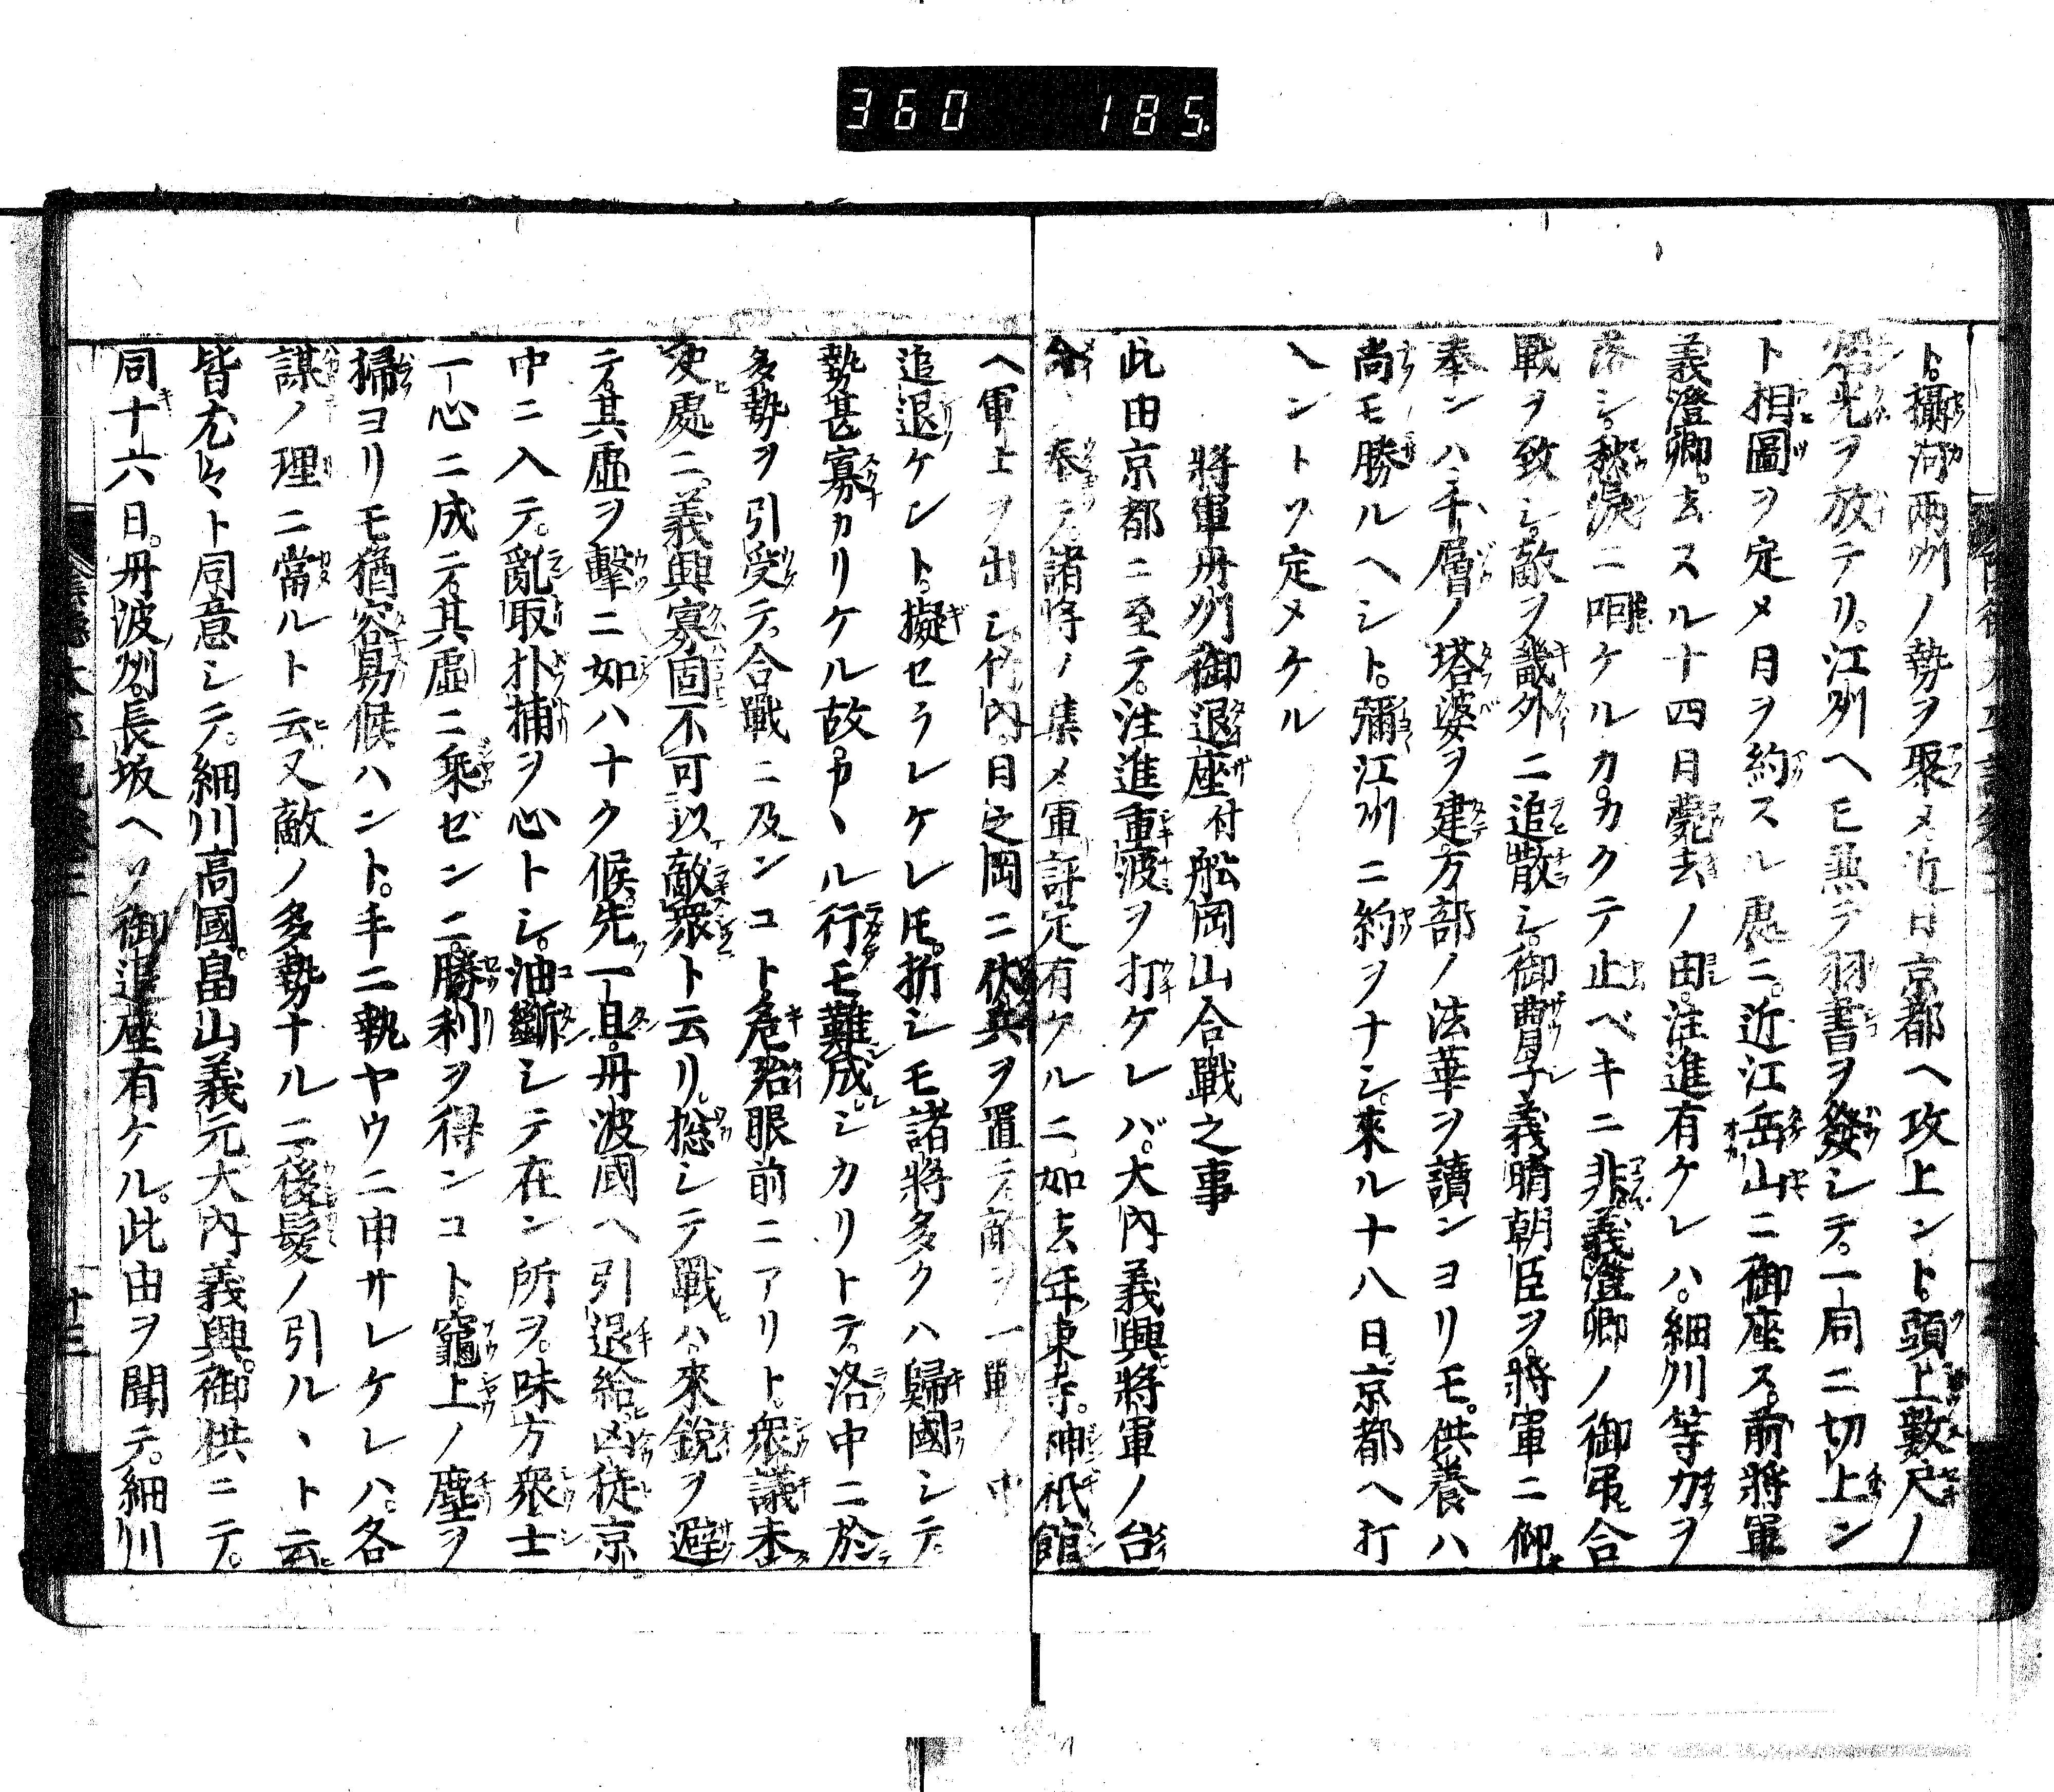 360 185
ト。攝河兩州ノ勢ヲ聚メ近日京都ヘ攻上ント。頭上數尺ノ
光ヲ放テリ。江州ヘモ兼テ羽書ヲ發シテ。一同ニ切上ン
ト相圖ヲ定メ日ヲ約スル處ニ。近江岳山ニ御座ス。前將軍
義澄卿。去スル十四日薨去ノ由。注進有ケレハ。細川等力ヲ
落シ。愁淚ニ咽ケルカ。カクテ止ベキニ非。義澄卿ノ御弔合
戰ヲ致シ。敵ヲ畿外ニ追散シ。御曹子義晴朝臣ヲ。將軍ニ仰
奉ンハ。千層ノ塔婆ヲ建。万部ノ法華ヲ讀ンヨリモ。供養ハ
尚モ勝ルヘシト。彌江州ニ約ヲナシ。來ル十八日。京都ヘ打
入ントソ定メケル
將軍丹州御退座付船岡山合戰之事
此由京都ニ至テ。注進重波ヲ打ケレバ。大內義興。將軍ノ台
命ヲ奉テ。諸將ノ集メ軍評定有ケルニ。如去年東寺。神祇館
ヘ軍士ヲ出シ。竹內。日之岡ニ伏兵ヲ置テ。敵ヲ一戰ノ中
追退ケント。擬セラレケレ𪜈。折シモ諸將多クハ歸國シテ。
勢甚寡カリケル故。カヽル行モ難成シカリトテ。洛中ニ於
多勢ヲ引受テ。合戰ニ及ンコト。危殆眼前ニアリト。衆議未
決處ニ。義興寡固不可以敵衆ト云リ。捴シテ戰ハ。來銳ヲ避
テ。其虛ヲ擊ニ如ハナク候。先一旦。丹波國ヘ引退給ヒ。凶徒京
中ニ入テ。亂取扑捕ヲ心トシ。油斷シテ在ン所ヲ。味方衆士
一心ニ成テ。其虛ニ乘ゼンニ。勝利ヲ得ンコト。竈上ノ塵ヲ
掃ヨリモ猶容易候ハント。手ニ執ヤウニ申サレケレハ。各
謀ノ理ニ當ルト云。又敵ノ多勢ナルニ。後髮ノ引ルヽト云
皆尤々ト同意シテ。細川高國。畠山義元大內義興。御供ニテ。
同十六日。丹波州。長坂ヘソ御退座有ケル。此由ヲ聞テ。細川
十三